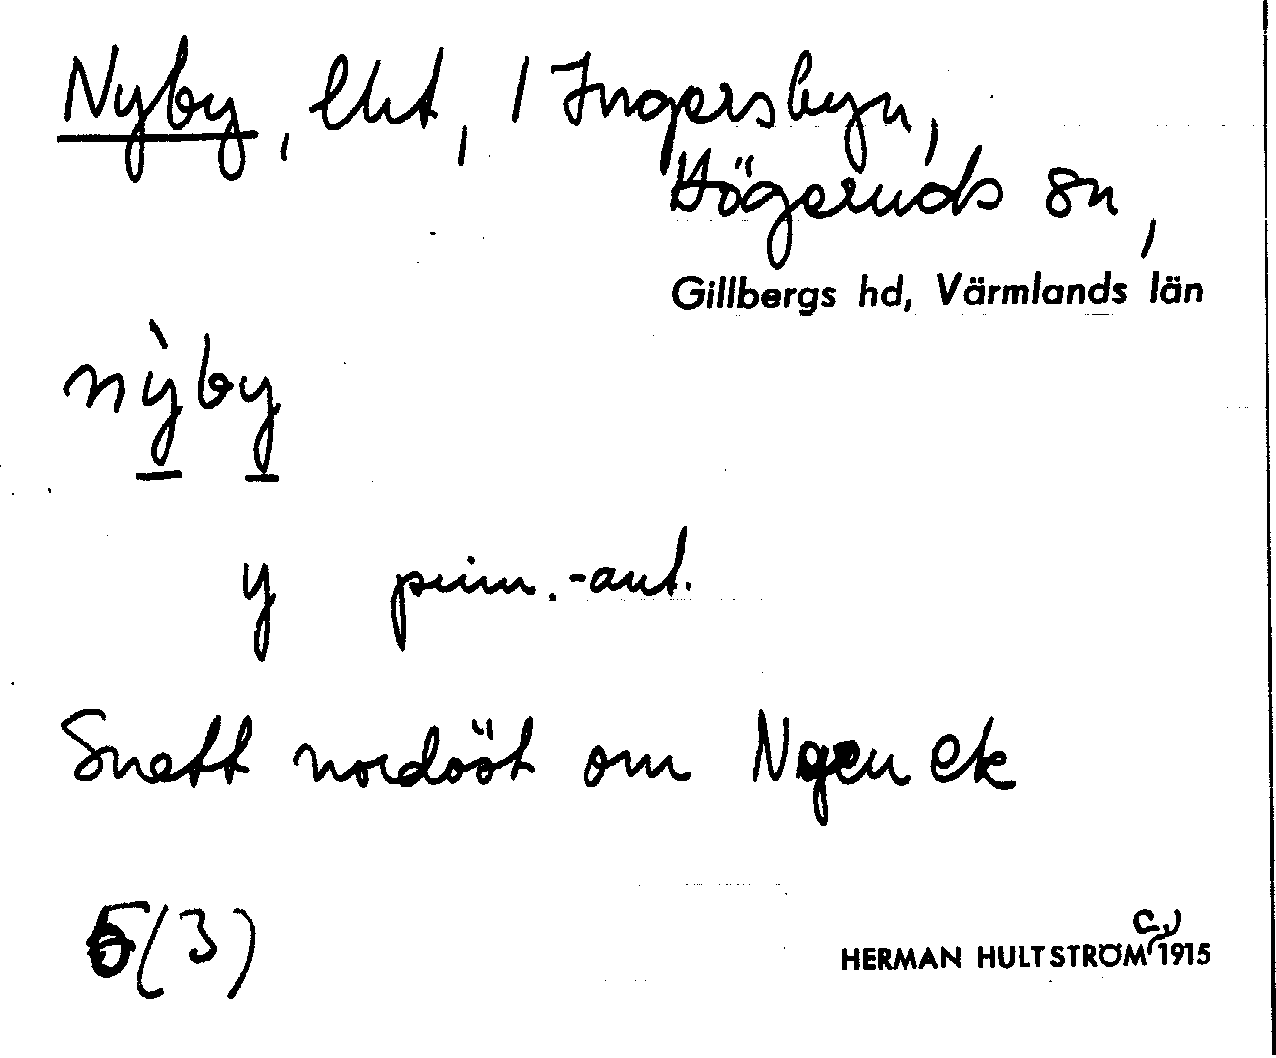 Nyby, lht, i Ingersbyn,
Högeruds sn,
Gillbergs hd, Värmlands län
nỳby
y prim.-ant.
Snett nordöst om
5(3)
c.)
HERMAN HULTSTRÖM 1915